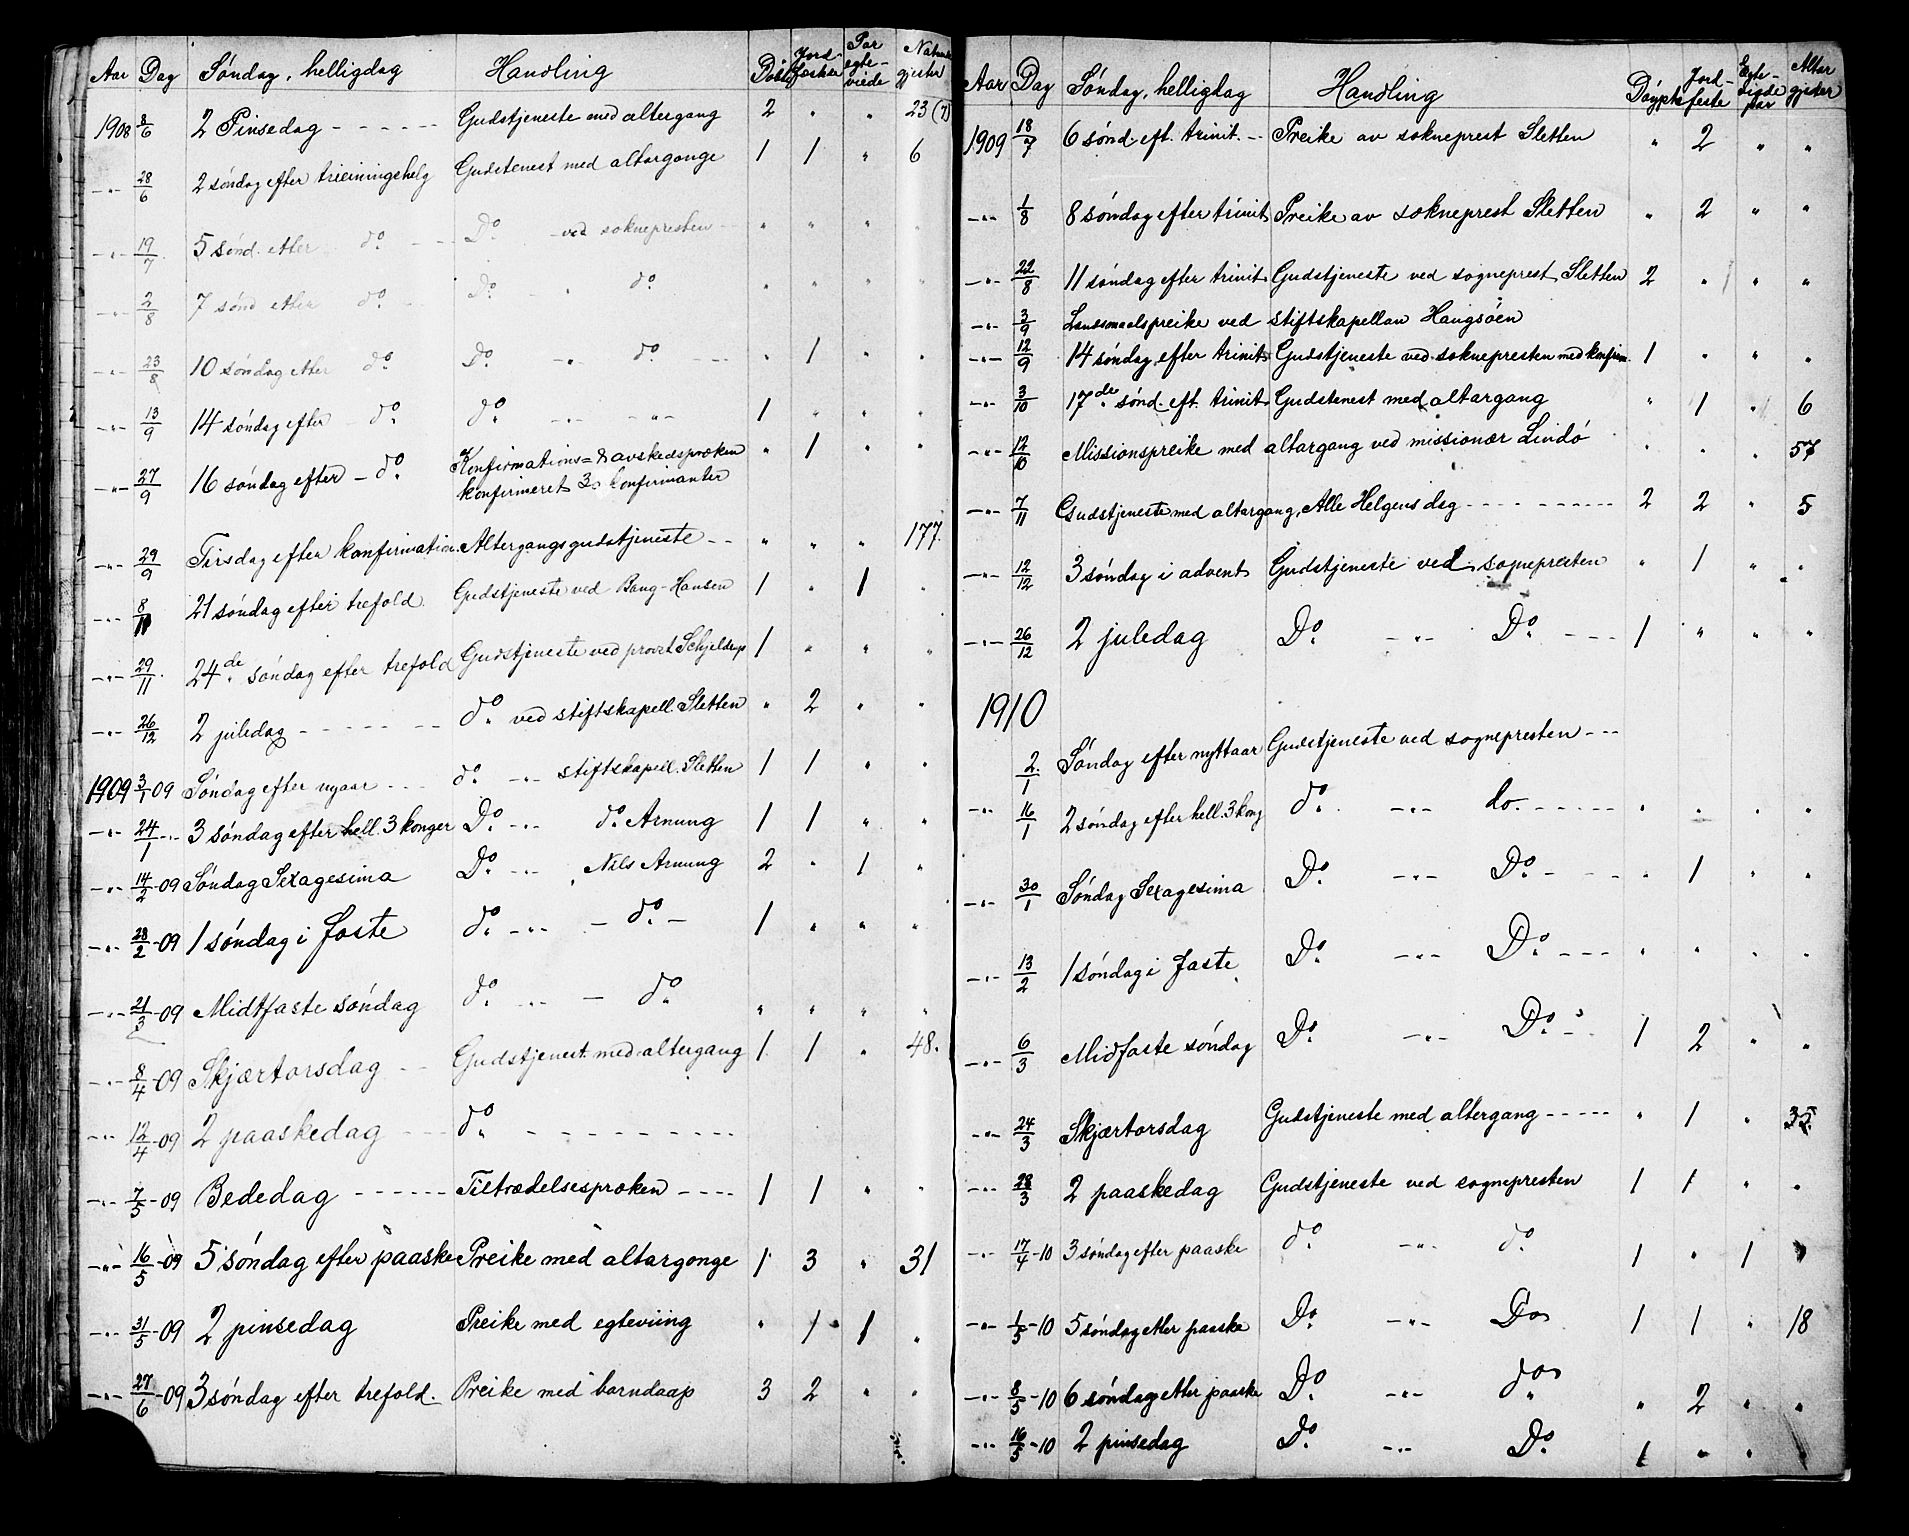 Aar Dag Søndag, helligdag Handling Døbte Jordfæstede Par egteviede Natverdgjester
1908 8/6 2 Pinsedag - - - - - - Gudstjeneste med altergang 2 " " 23 (7)
-"- 28/6 2 søndag efter trieiningshelg Gudstenest med altargonge 1 1 " 6
-"- 19/7 5 sønd. etter do - - - Do ved soknepresten - - " " " "
-"- 2/8 7 sønd etter do - - - Do - " do " " " "
-"- 23/8 10 søndag etter do Do -"- do - - - " 1 " "
-"- 13/9 14 søndag efter - do do -"- -"- 1 " " "
-"- 27/9 16 søndag efter - do Konfirmations= & avskedspræken " 1 " "
konfirmeret 3 konfirmanter
-"- 29/9 Tirsdag efter konfirmation. Altergangsgudstjeneste - - " " " 177.
-"- 8/11 21 søndag efter trefold. Gudstjeneste ved Bang-Hansen 1 " 1 "
-"- 29/11 24de søndag efter trefold Gudstjeneste ved provst Schjelderup 1 " " "
-"- 26/12 2 juledag - - - - - - - do ved stiftskapell. Sletten " 2 " "
1909 3/1 09 Søndag efter nyaar - - - do -"- stiftskapell. Sletten 1 1 " "
-"- 24/1 -"- 3 søndag efter hell. 3 konger Do -"- do Arnung 1 1 " "
-"- 14/2 -09 Søndag Sexagesima Do -"- Nils Arnung 2 " 1 "
-"- 28/2 -09 1 søndag i faste do -"- - do - 1 " " "
-"- 21/3 -09 Midtfaste søndag do -"- - do " " " "
-"- 8/4 -09 Skjærtorsdag - - Gudstjenest. med altergang 1 1 " 48.
-"- 12/4 -09 2 paaskedag - - - do - - - - - - - - -
-"- 7/5 -09 Bededag - - - - - - Tiltrædelsespræken - - - - 1 1 " "
-"- 16/5 -09 5 søndag efter paaske Preike med altargonge 1 3 " 31
-"- 31/5 -09 2 pinsedag Preike med egteviing " 1 1 "
-"- 27/6 -09 3 søndag efter trefold. Preike med barndaap 3 2 " "
Aar Dag Søndag, helligdag Handling Døypte Jordfeste Egtevigde par Altargjester
1909 18/7 6 sønd. eft. trinit. - - Preike av sokneprest Sletten " 2 " "
-"- 1/8 8 søndag efter trinit. Preike av sokneprest Sletten " 2 " "
-"- 22/8 11 søndag efter trinit. Gudstjeneste ved sogneprest Sletten 2 " " "
-"- 3/9 Landsmaalspreike ved stiftskapellan Haugsøen
-"- 12/9 14 søndag efter trinit. Gudstjeneste ved soknepresten med konfirm. 1 " " "
-"- 3/10 17de sønd. eft. trinit. Gudstenest med altargang " 1 " 6
-"- 12/10 Missionspreike med altargang ved missionær Lindø " " " 57
-"- 7/11 Gudstjeneste med altargang, Alle Helgens dag - - - - - - - - - 2 2 " 5
-"- 12/12 3 søndag i advent Gudstjeneste ved sognepresten " 1 " "
-"- 26/12 2 juledag Do -"- Do - - - 1 " " "
1910
2/1 Søndag efter nyttaar Gudstjeneste ved sognepresten - - -
-"- 16/1 2 søndag efter hell. 3 kong do -"- do. - - - - - " " " "
-"- 30/1 Søndag Sexagesima Do -"- Do - - - - " 1 " "
-"- 13/2 1 søndag i faste Do -"- Do - - - - " " " "
-"- 6/3 Midfaste søndag Do -"- Do - - 1 2 " "
-"- 24/3 Skjærtorsdag Gudstjeneste med altergang - - - - - " 1 " 35.
-"- 28/3 2 paaskedag Gudstjeneste ved sognepresten 1 1 " "
-"- 17/4 -10 3 søndag efter paaske do -"- do 1 " 1 "
-"- 1/5 -10 5 søndag etter paaske Do -"- Do 1 1 " 18
-"- 8/5 -10 6 søndag etter paaske Do -"- do " 2 " "
-"- 16/5 -10 2 pinsedag Do -"- Do 1 " "